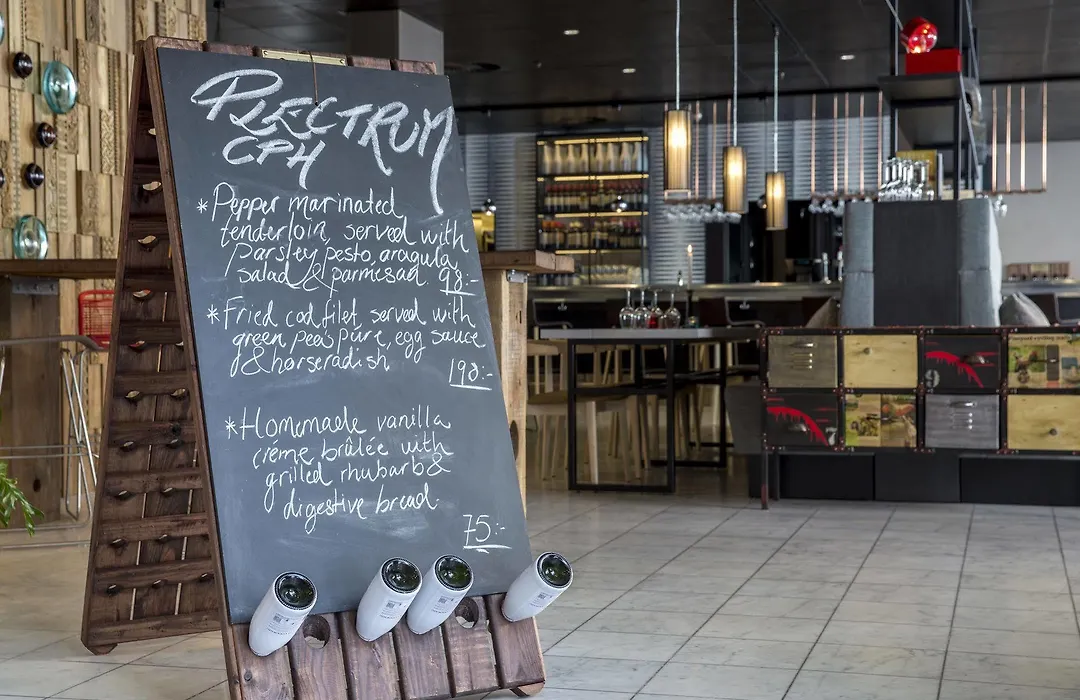 PLECTRUM
CPH
*Pepper marinated
tenderloin, served with
parsley pesto, aragula
salad & parmesad 98:-
*Fried cod filet, served with
green peas puré, egg sauce
& horseradish
198:-
*Homemade vanilla
créme brûlée with
grilled rhubarb &
digestive bread
75:-
9